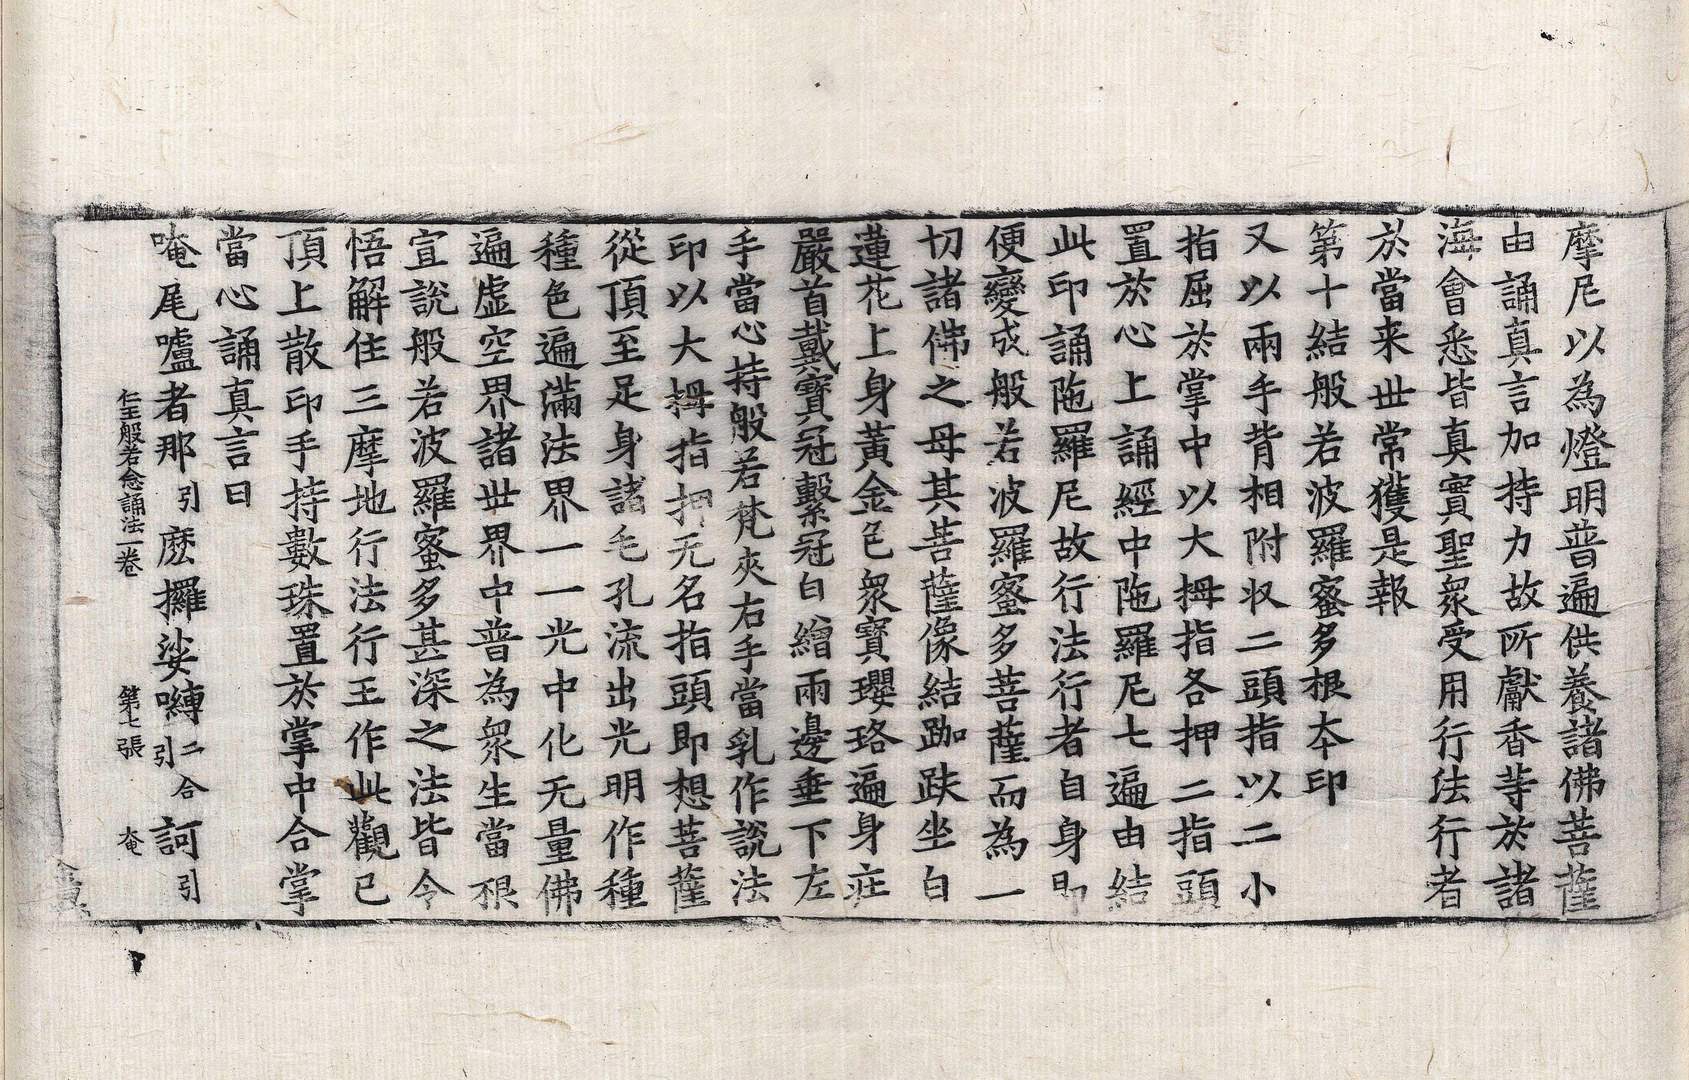 摩尼以為燈明普遍供養諸佛菩薩
由誦真言加持力故所獻香等於諸
海會悉皆真實聖衆受用行法行者
於當来世常獲是報
第十結般若波羅蜜多根夲印
又以兩手背相附収二頭指以二小
指屈於掌中以大拇指各押二指頭
置於心上誦經中陁羅尼七遍由結
此印誦陁羅尼故行法行者自身即
便變成般若波羅蜜多菩薩而為一
切諸佛之母其菩薩像結跏趺坐白
蓮花上身黃金色衆寶瓔珞遍身莊
嚴首戴寶冠繫冠白繒兩邊垂下左
手當心持般若梵夾右手當乳作說法
印以大拇指押无名指頭即想菩薩
從頂至足身諸毛孔流出光明作種
種色遍滿法界一一光中化无量佛
遍虛空界諸世界中普為衆生當根
宣說般若波羅蜜多甚深之法皆令
悟解住三摩地行法行王作此觀已
頂上散印手持數珠置於掌中合掌
當心誦真言曰
唵尾嚧者那引麽攞娑嚩二合引訶引
仁王般若念誦法一卷 第七張 奄